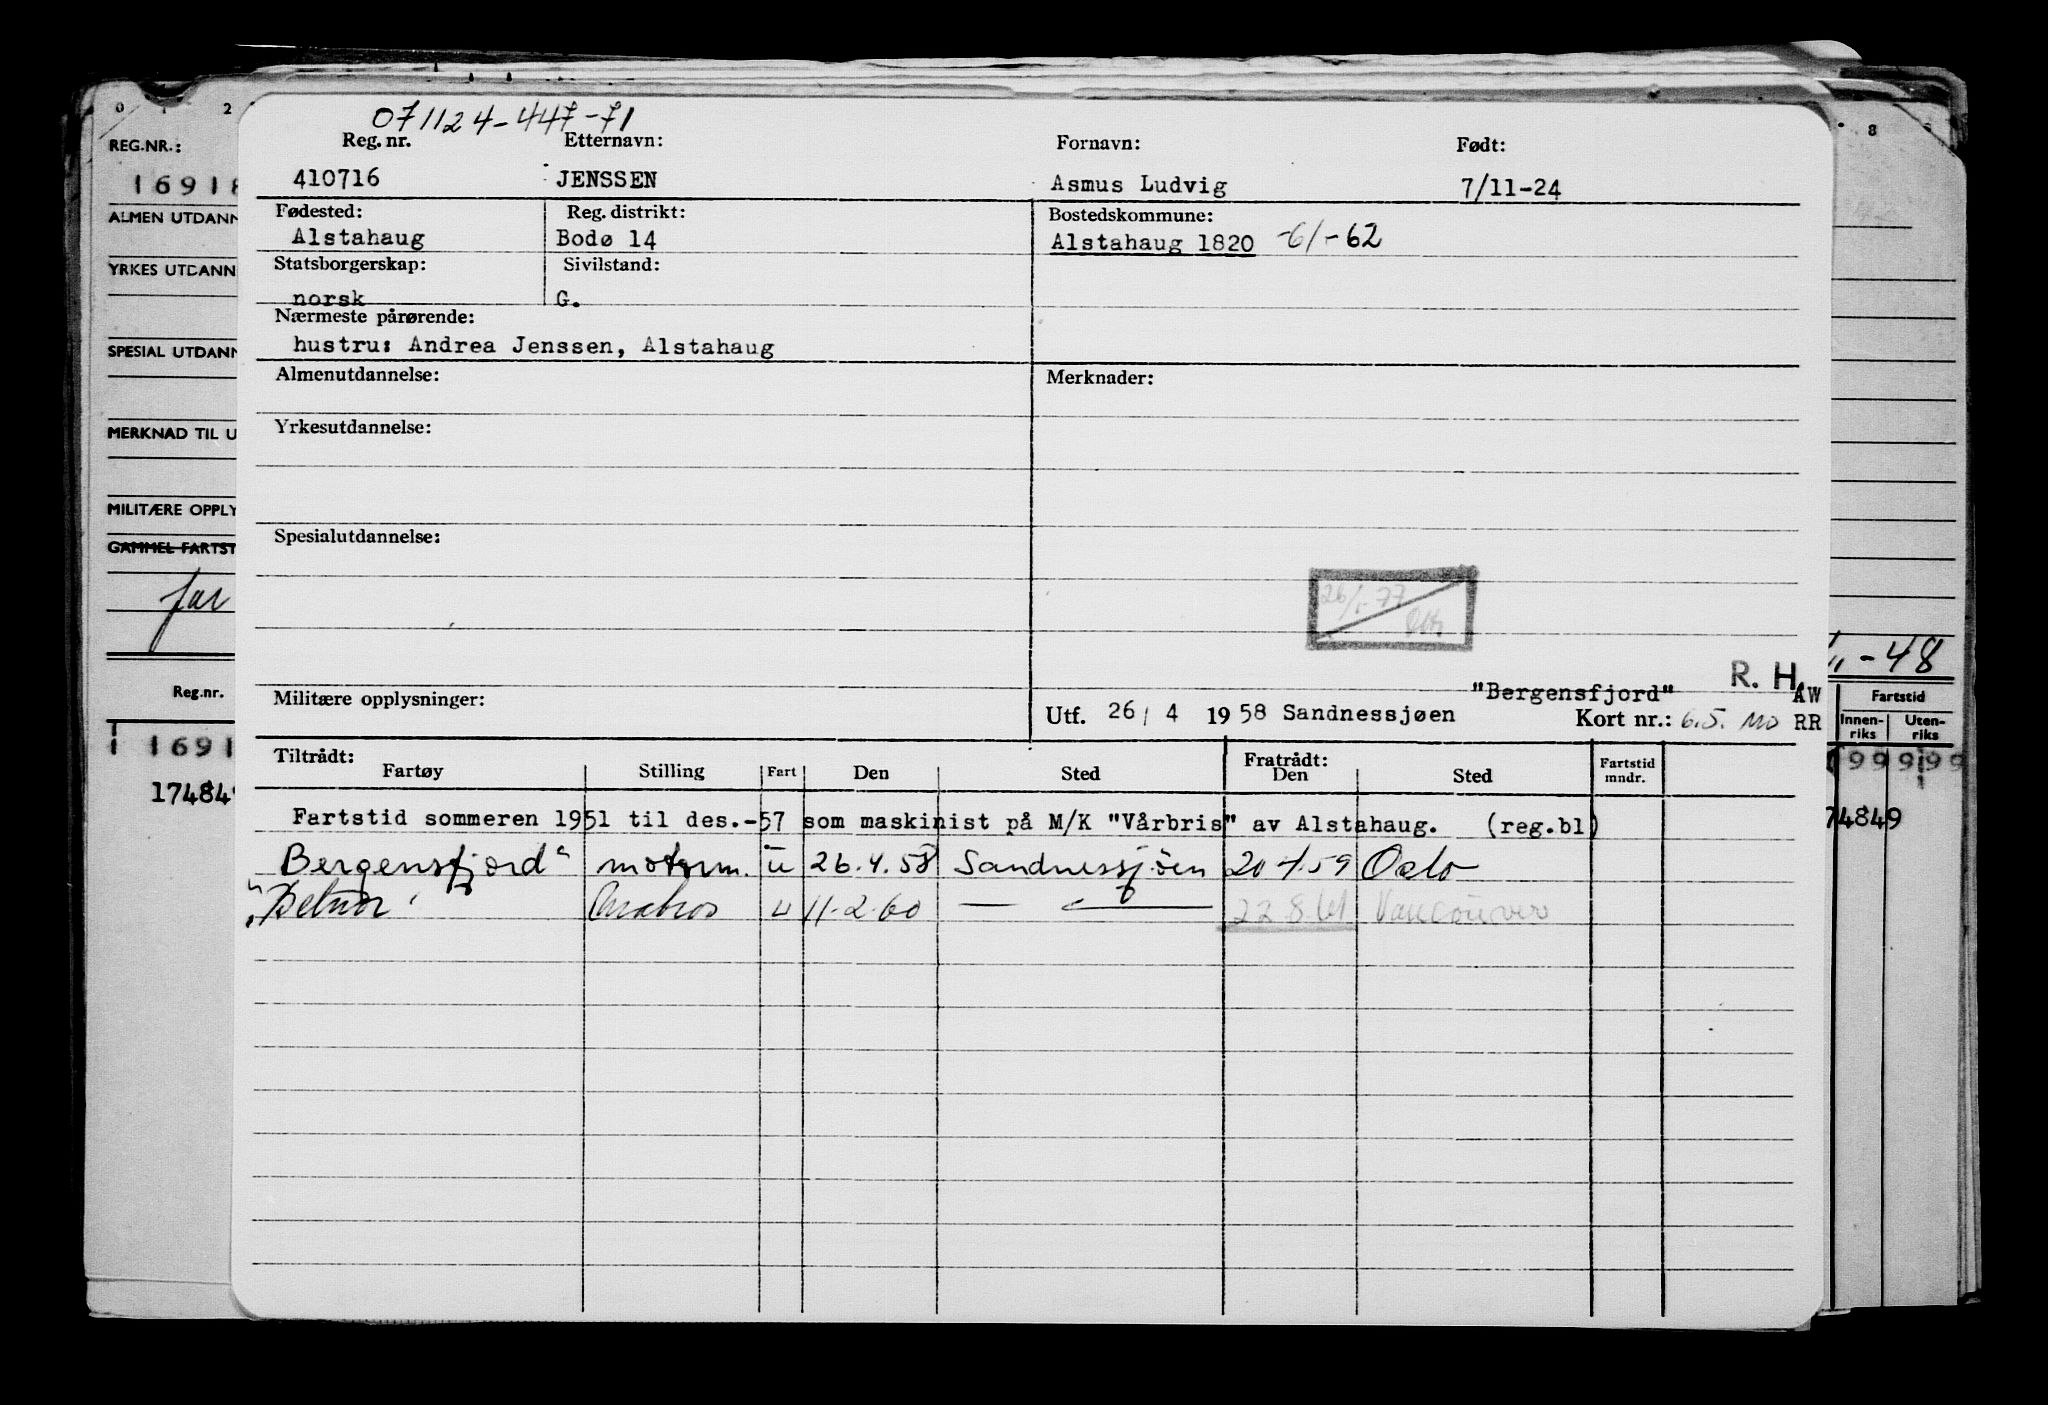 0 1 2
REG.NR.:
16918
ALMEN UTDANN
YRKES UTDANN
SPESIAL UTDANN
MERKNAD TIL U
MILITÆRE OPPLY
GAMMEL FARTST
far
Reg.nr.
1691
174849
071124-447-71
Reg. nr. Etternavn: Fornavn: Født:
410716 JENSSEN Asmus Ludvig 7/11-24
Fødested: Reg. distrikt: Bostedskommune:
Alstahaug Bodø 14 Alstahaug 1820 -61-62
Statsborgerskap: Sivilstand:
norsk G.
Nærmeste pårørende:
hustru: Andrea Jenssen, Alstahaug
Almenutdannelse: Merknader:
Yrkesutdannelse:
Spesialutdannelse:
26/1-77
R. H.
"Bergensfjord" AW
Militære opplysninger: Utf. 26/4 1958 Sandnessjøen Kort nr.: 6.5. MO RR
Tiltrådt: Fratrådt:
Fartøy Stilling Fart Den Sted Den Sted Fartstid mndr.
Fartstid sommeren 1951 til des.-57 som maskinist på M/K "Vårbris" av Alstahaug. (reg.bl)
Bergensfjord" motorm. u 26.4.58 Sandnessjøen 20/1.59 Oslo
" u 11-2-60 — " — 22.8.61 Vancouver
8
-48
Fartstid
Innen-riks Uten-riks
99999
74849